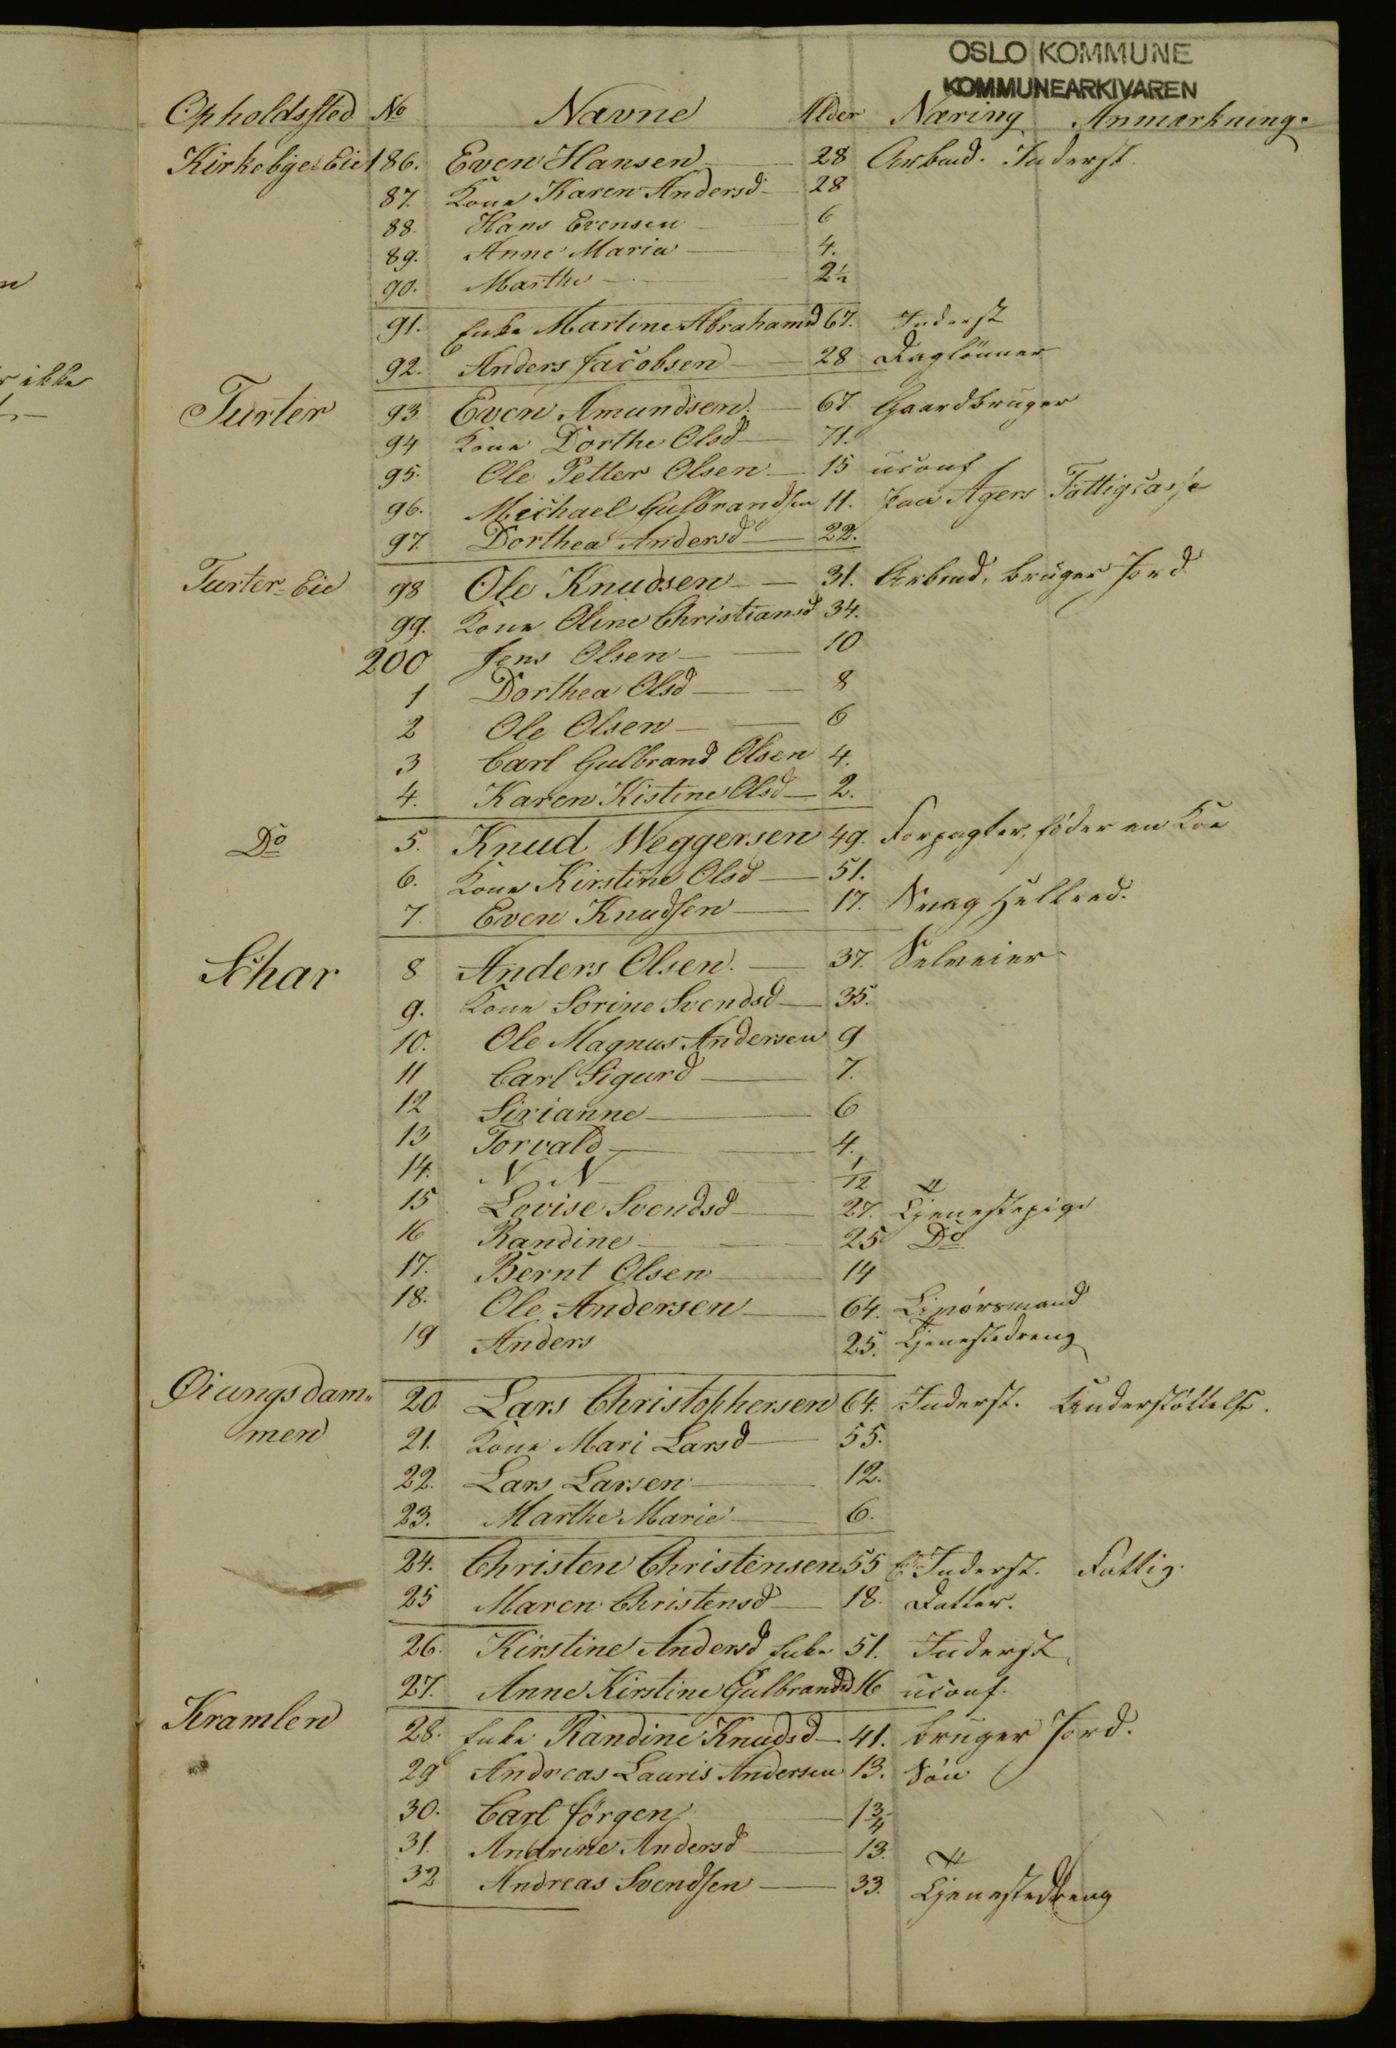 OSLO KOMMUNE
KOMMUNEARKIVAREN
Opholdssted No Navne Alder Næring Anmærkning.
Kirkebye=Eie 186. Even Hansen 28 Arbmd. Inderst.
87. Kone Karen Andersd 28
88. Hans Evensen 6
89. Anne Maria 4.
90. Marthe 2½
91. Enke Martine Abrahamsd 67. Inderst
92. Anders Jacobsen 28 Daglönner
Turter 93. Even Amundsen. 67. Gaardbruger
94 Kone Dorthe Olsd 71.
95. Ole Petter Olsen 15 uconf
96. Michael Gulbrandsen 11. paa Agers Fattigcasse
97. Dorthea Andersd 22.
Turter=Eie 98 Ole Knudsen 31. Arbmd, bruger Jord
99. Kone Oline Christiansd 34.
200 Jens Olsen 10
1 Dorthea Olsd 8
2 Ole Olsen 6
3 Carl Gulbrand Olsen 4.
4. Karen Kistine Olsd 2.
Do 5. Knud Weggersen 49. Forpagter, föder en Koe
6. Kone Kirstine Olsd 51.
7. Even Knudsen 17. Svag Helbred.
Schar 8 Anders Olsen. 37. Selveier
9. Kone Sörine Svendsd 35.
10. Ole Magnus Andersen 9
11 Carl Sigurd 7.
12 Sirianne 6
13 Torvald 4.
14. N N 1/12
15 Lovise Svendsd 27. Tjenestepige
16 Randine 25 Do
17. Bernt Olsen 14
18. Ole Andersen 64.
19 Anders 25. Tjenestedreng
Øiungsdam=
men
20. Lars Christophersen 64. Inderst. Understöttelse.
21. Kone Mari Larsd 55.
22. Lars Larsen 12.
23. Marthe Marie 6.
24. Christen Christensen 55 Inderst. Fattig.
25 Maren Christensd 18. Datter.
26. Kirstine Andersd Enke 51. Inderst,
27. Anne Kirstine Gulbrandsd 16 uconf.
Kramlen 28. Enke Randine Knudsd 41. bruger Jord.
29 Andreas Lauris Andersen 13. Sön
30. Carl Jörgen 1¾
31. Andrine Andersd 13.
32 Andreas Svendsen 33. Tjenestedreng